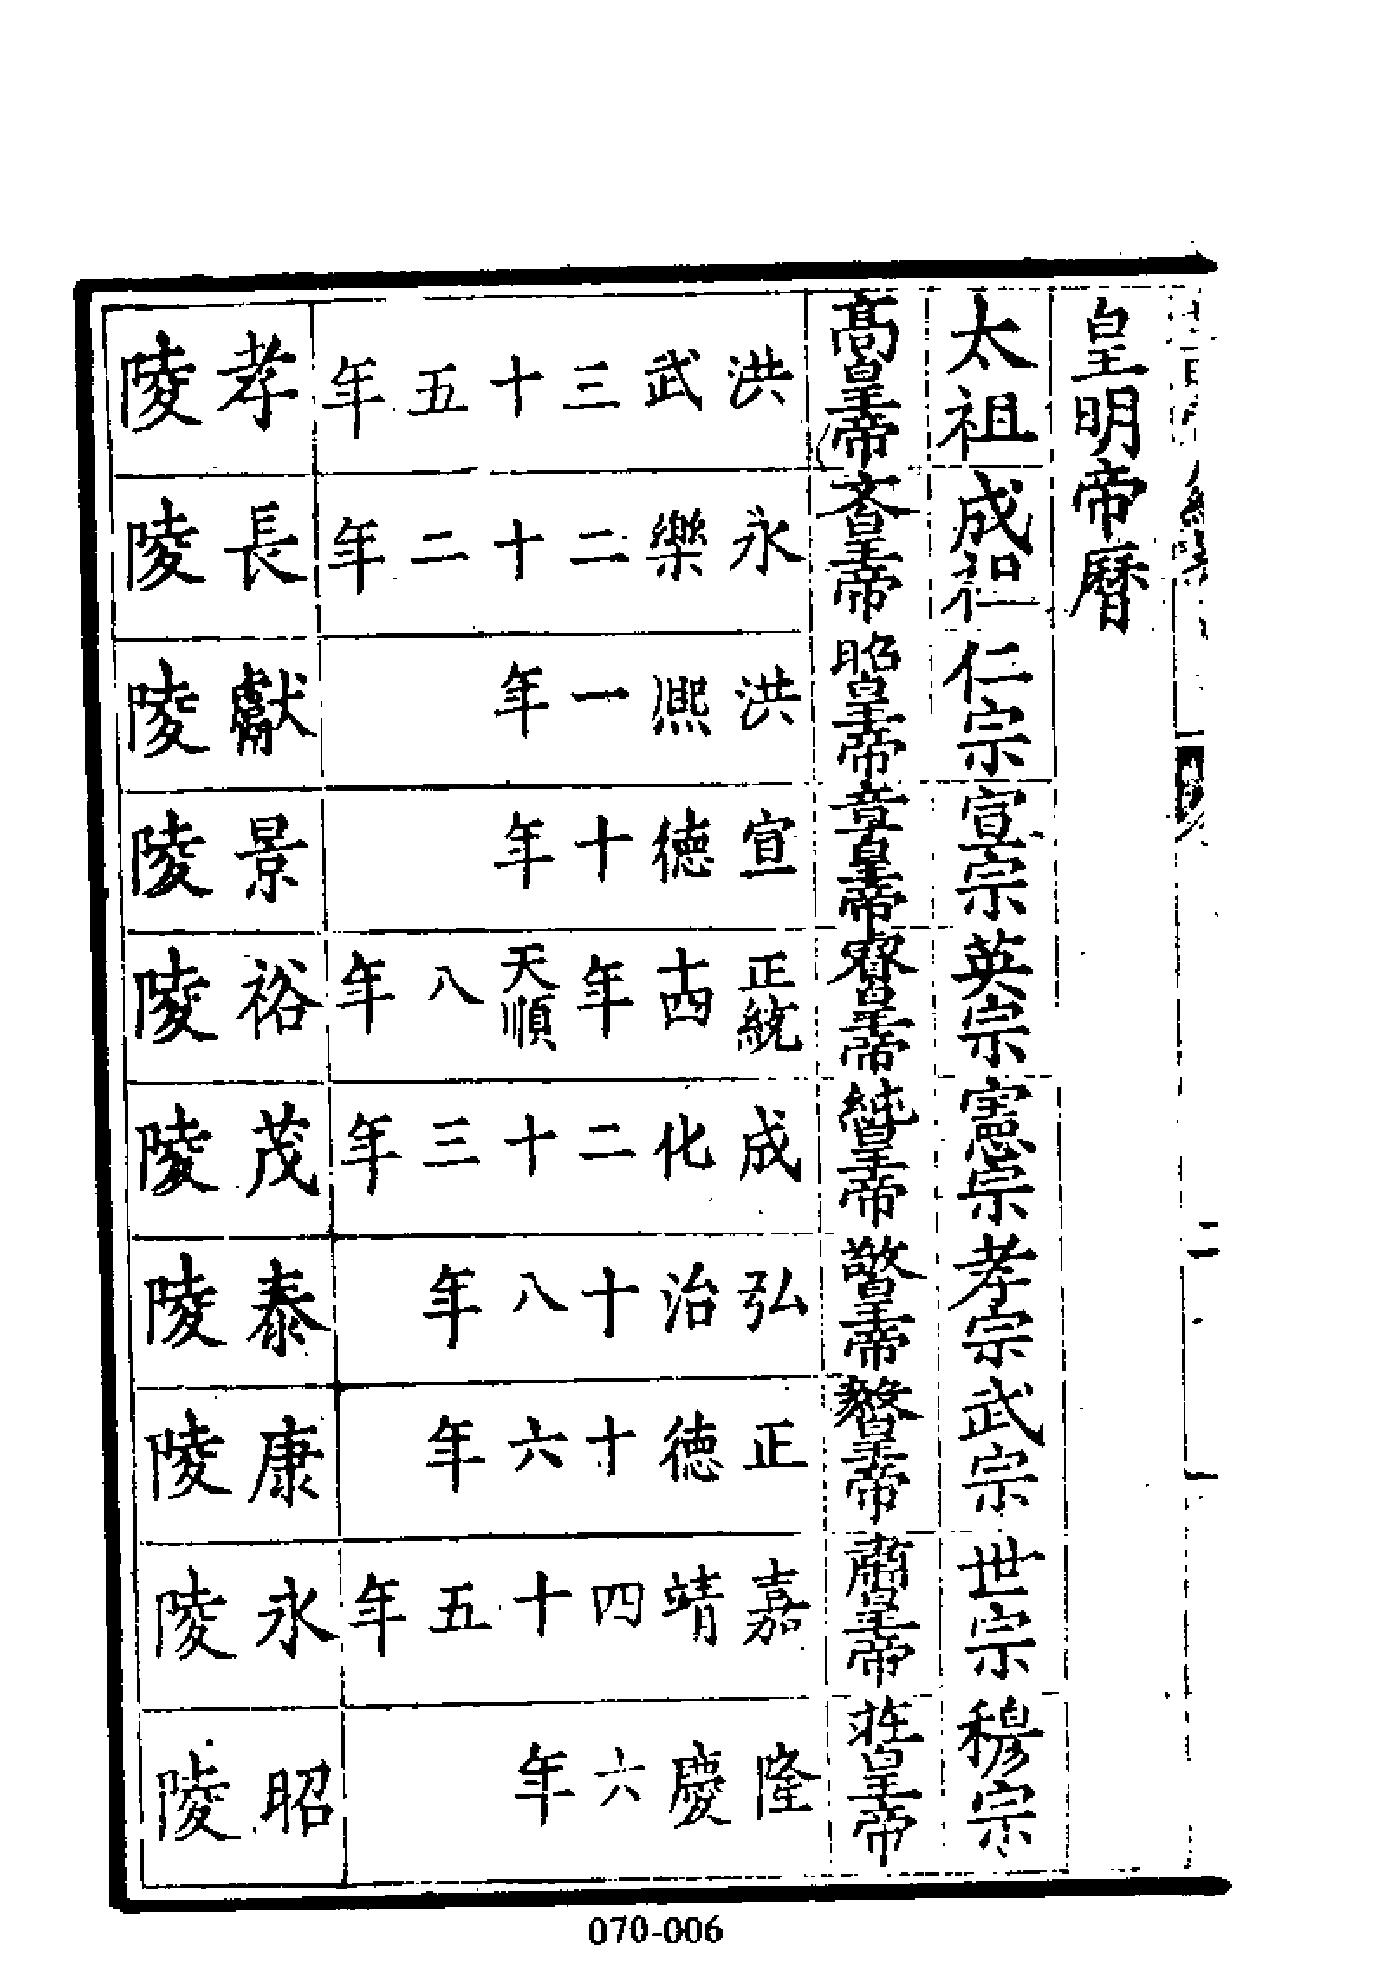 皇明帝曆
太祖 成祖 仁宗 宣宗 英宗 憲宗 孝宗 武宗 世宗 穆宗
高皇帝 文皇帝 昭皇帝 章皇帝 睿皇帝 純皇帝 敬皇帝 毅皇帝 肅皇帝 莊皇帝
洪武三十五年
永樂二十二年
洪熙一年
宣德十年
正統十四年天順八年
成化二十三年
弘治十八年
正德十六年
嘉靖四十五年
隆慶六年
孝陵
長陵
獻陵
景陵
裕陵
茂陵
泰陵
康陵
永陵
昭陵
二
070-006